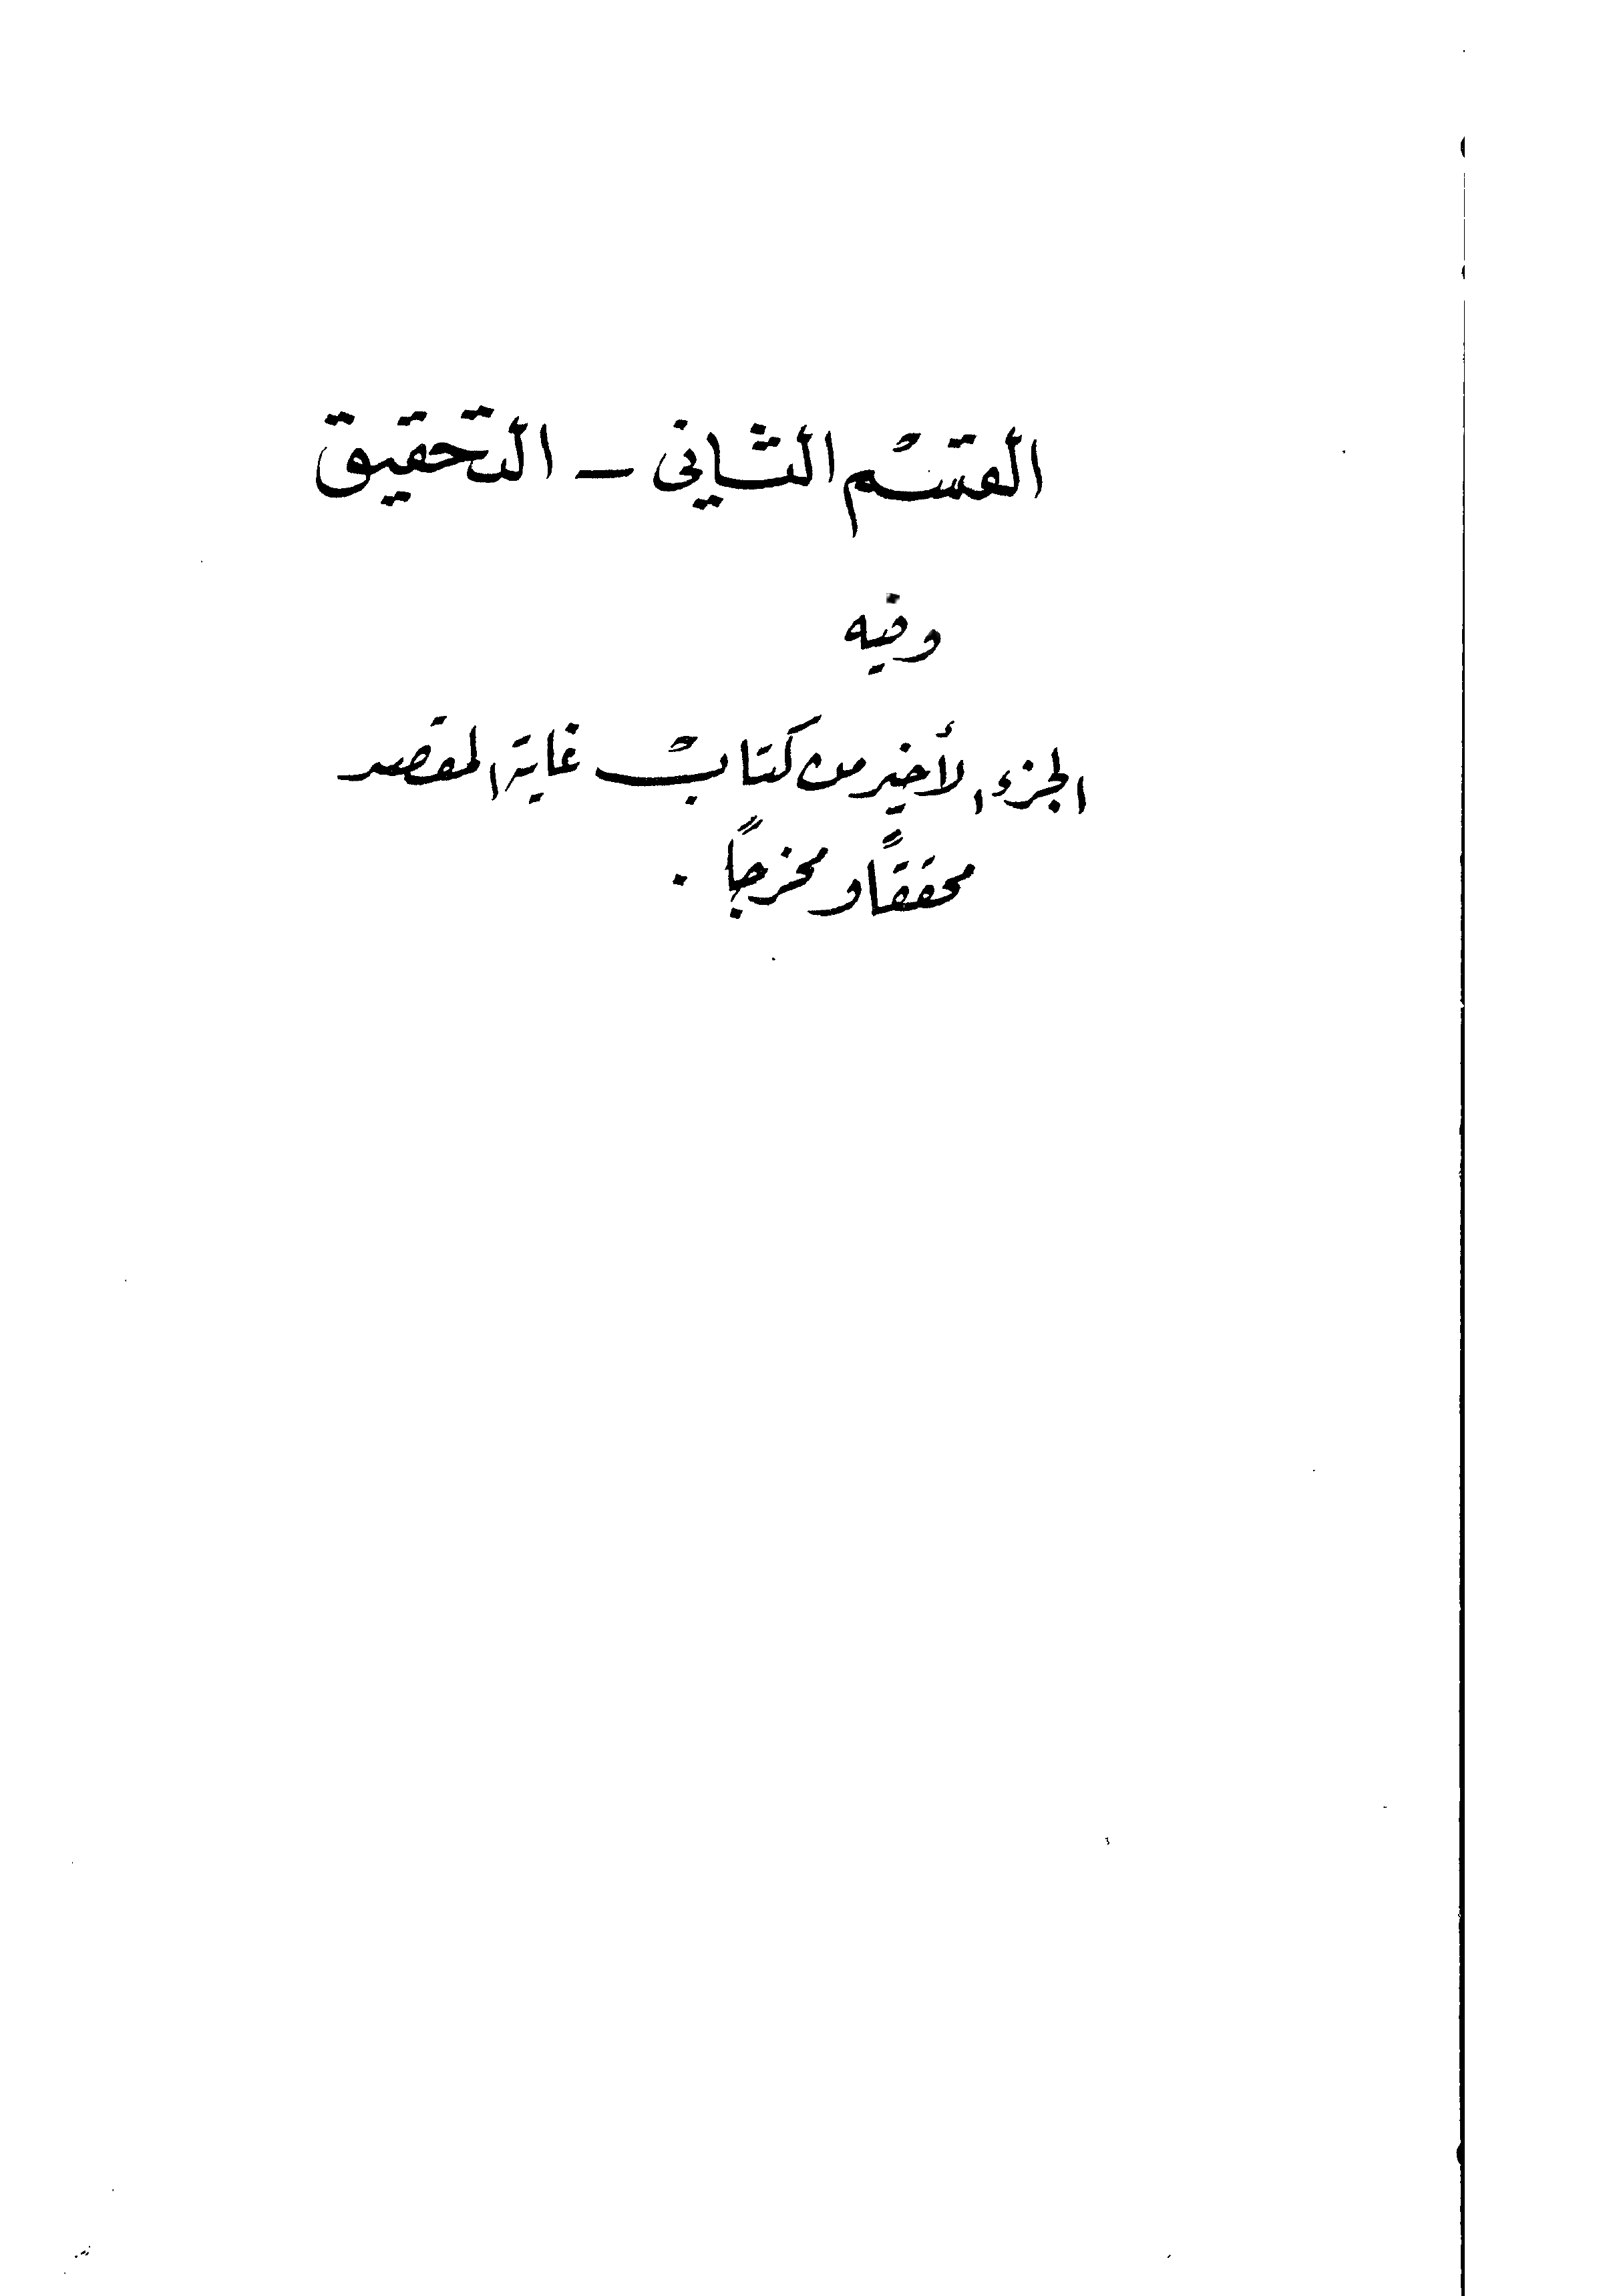 القسم الثاني – التحقيق
وفيه
الجزء الأخير من كتاب غاية المقصد
محققاً ومخرجاً .